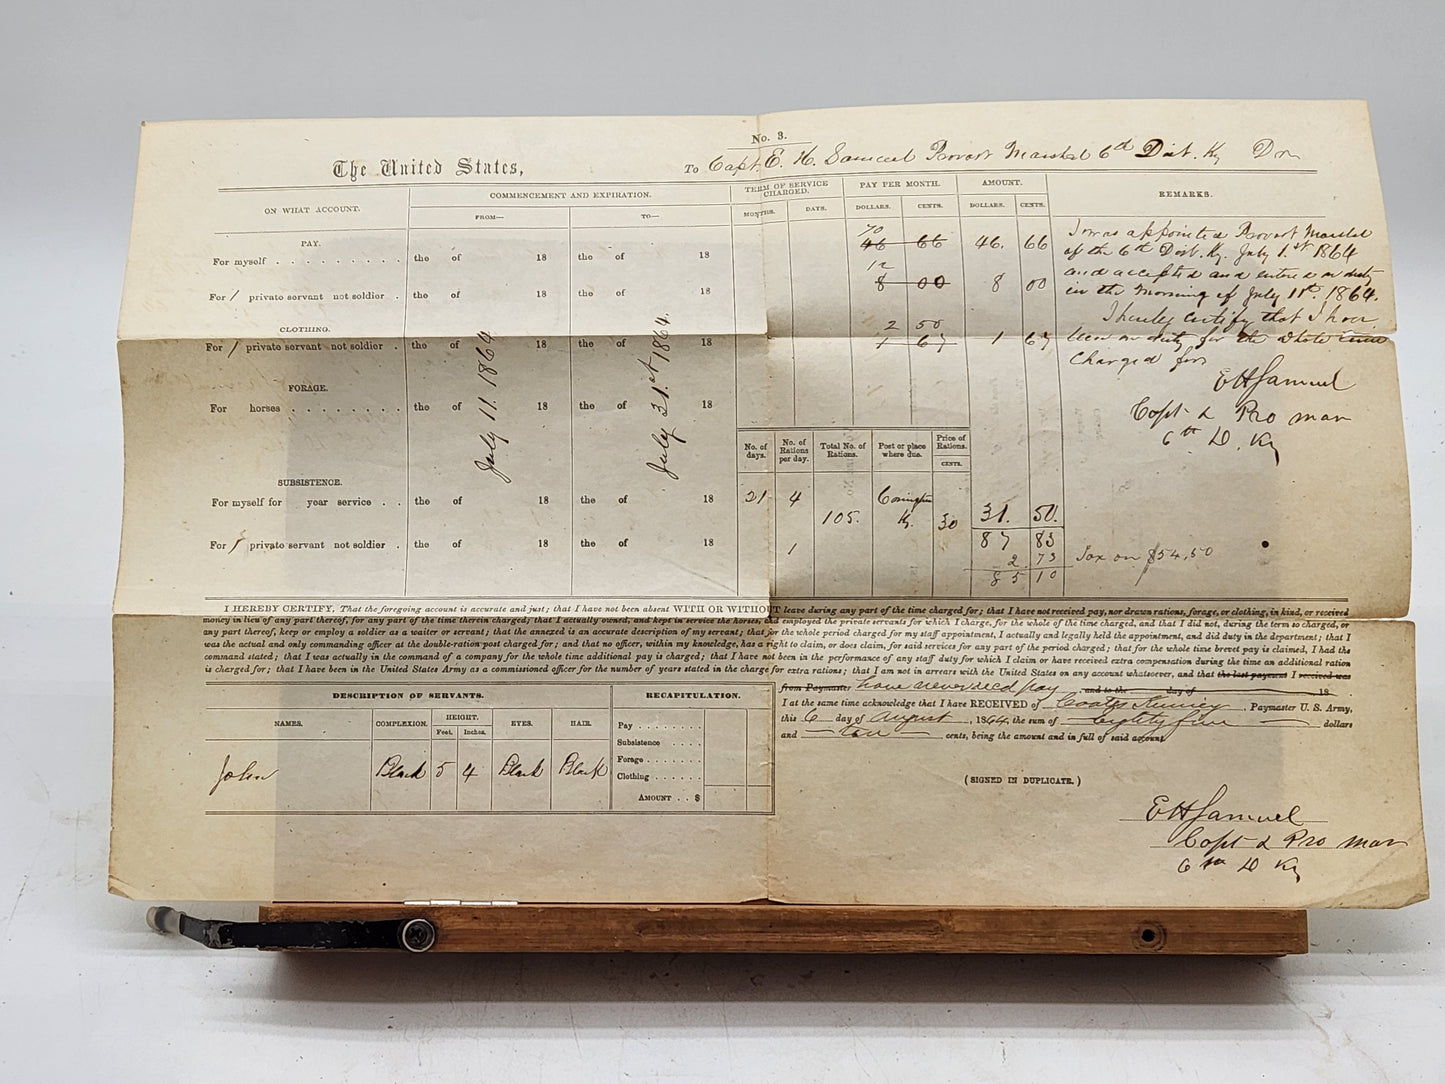 No. 3.
The United States, To Capt. E. H. Samuel Provost Marshal 6th Dist. Ky Dr
ON WHAT ACCOUNT. COMMENCEMENT AND EXPIRATION. TERM OF SERVICE CHARGED. PAY PER MONTH. AMOUNT. REMARKS.
FROM— TO— MONTHS. DAYS. DOLLARS. CENTS. DOLLARS. CENTS.
PAY.
70
For myself . . . . . . . . . the of 18 the of 18 46 66 46. 66
12
For 1 private servant not soldier . the of 18 the of 18 8 00 8 00
CLOTHING.
2 50
For 1 private servant not soldier . the of 18 the of 18 1 67 1 67
FORAGE.
For horses . . . . . . . . the of 18 the of 18
July 11. 1864
July 31st 1864.
I was appointed Provost Marshal
of the 6th Dist. Ky. July 1st 1864
and accepted and entered on duty
in the morning of July 11th. 1864.
I hereby certify that I have
been on duty for the whole time
Charged for
E H Samuel
Capt & Pro Mar
6th D. Ky
No. of days. No. of Rations per day. Total No. of Rations. Post or place where due. Price of Rations. CENTS.
SUBSISTENCE.
For myself for year service . . the of 18 the of 18 21 4 105. Covington Ky. 30 31. 50.
87 83
For 1 private servant not soldier . the of 18 the of 18 1 2 73 Tax on $54,50
85 10
I HEREBY CERTIFY, That the foregoing account is accurate and just; that I have not been absent WITH OR WITHOUT leave during any part of the time charged for; that I have not received pay, nor drawn rations, forage, or clothing, in kind, or received
money in lieu of any part thereof, for any part of the time therein charged; that I actually owned, and kept in service the horses, and employed the private servants for which I charge, for the whole of the time charged, and that I did not, during the term so charged, or
any part thereof, keep or employ a soldier as a waiter or servant; that the annexed is an accurate description of my servant; that for the whole period charged for my staff appointment, I actually and legally held the appointment, and did duty in the department; that I
was the actual and only commanding officer at the double-ration post charged for; and that no officer, within my knowledge, has a right to claim, or does claim, for said services for any part of the period charged; that for the whole time brevet pay is claimed, I had the
command stated; that I was actually in the command of a company for the whole time additional pay is charged; that I have not been in the performance of any staff duty for which I claim or have received extra compensation during the time an additional ration
is charged for; that I have been in the United States Army as a commissioned officer for the number of years stated in the charge for extra rations; that I am not in arrears with the United States on any account whatsoever, and that the last payment I received was
from Paymaster have never recd pay , and to the day of 18 .
I at the same time acknowledge that I have RECEIVED of Coates Kinney , Paymaster U. S. Army,
this 6 day of August , 1864, the sum of Eighty five dollars
and ten cents, being the amount and in full of said account.
DESCRIPTION OF SERVANTS. RECAPITULATION.
NAMES. COMPLEXION. HEIGHT. EYES. HAIR.
Feet. Inches.
John Black 5 4 Black Black
Pay . . . . . .
Subsistence . . . . .
Forage . . . . . . .
Clothing . . . . . .
AMOUNT . . $
(SIGNED IN DUPLICATE.)
E H Samuel
Capt & Pro Mar
6th D Ky